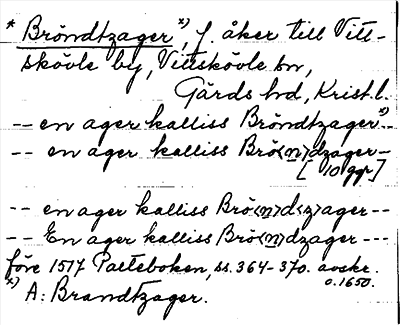 * Bröndtzager *), f. åker till Vitt-
skövle by, Vittskövle sn,
Gärds hd, Krist. l.
-- en ager kalliss Bröndtzager *)--
-- en ager kalliss Brö<n>dzager --
[10 ggr]
-- en ager kalliss Brö<n>d<z>ager --
-- En ager kalliss Brö<n>dzager ---
före 1517 Palteboken, ss. 364-370. avskr.
o. 1650.
*) A: Brandtzager.